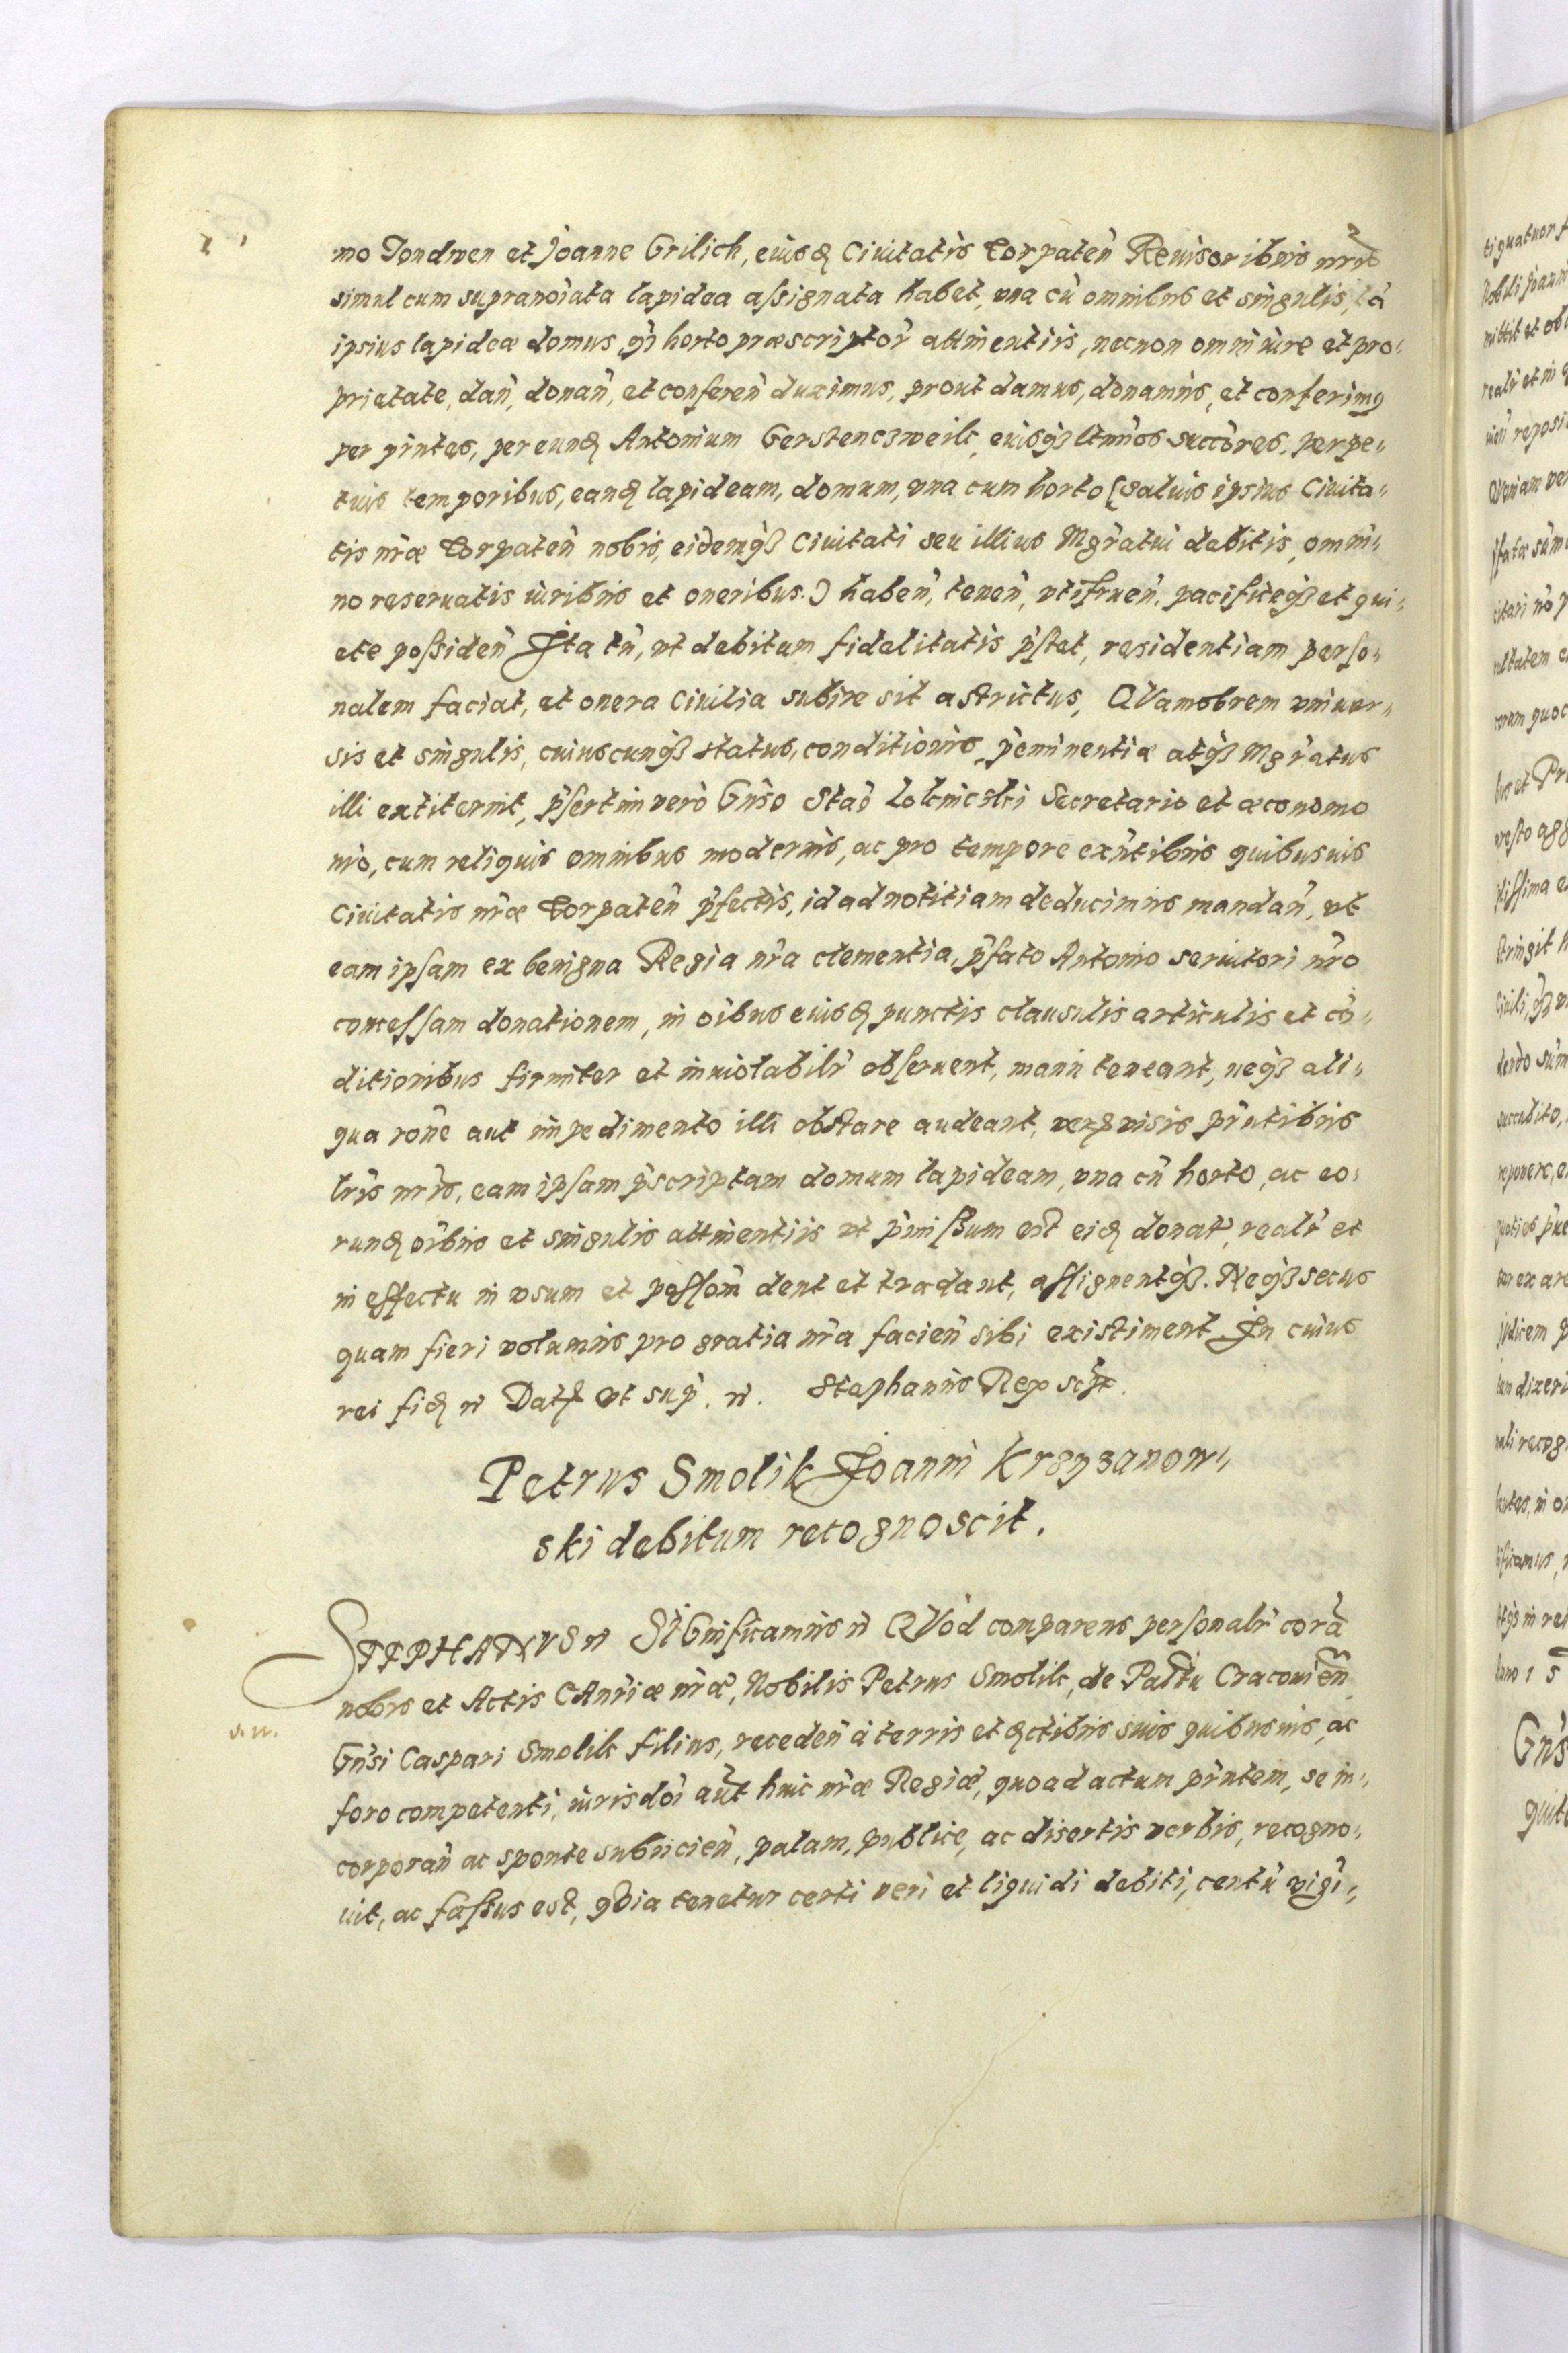 mo Tondwen et Joanne Grilich, eiusdę Ciuitatis Torpateñ Reuisoribus nris
simul cum supranoiata lapidea assignata habet, vna cũ omnibus et singulis, tã
ipsius lapideæ domus, q̃ horto præscriptor̃ attinentiis, necnon omni iure et pro-
prietate, dañ, donañ, et confereñ duximus, prout damus, donamus, et conferimꝰ
per p̃ntes, per eundę Antonium Gerstenczweik, eiusqꝫ ltimos succ̃ores, perpe-
tuis temporibus, eandę lapideam, domum, vna cum horto (saluis ipsius Ciuita-
tis nr̃æ Torpateñ nobis, eidemqꝫ Ciuitati seu illius Mgr̃atui debitis, omni-
no reseruatis iuribus et oneribus.) habeñ, teneñ, vtifrueñ, pacificeqꝫ et qui-
ete possideñ Ita tñ, vt debitum fidelitatis p̃stet, residentiam perso-
nalem faciat, et onera Ciuilia subire sit astrictus, QVamobrem vniuer-
sis et singulis, cuiuscunqꝫ status, conditionis, p̃eminentiæ atqꝫ Mgr̃atus
illi extiterint, p̃sertim verò Gnſo Stað Lokniczki Secretario et œconomo
nr̃o, cum reliquis omnibus modernis, ac pro tempore exñtibus quibusuis
Ciuitatis nr̃æ Torpateñ p̃fectis, id ad notitiam deducimus mandañ, vt
eam ipsam ex benigna Regia nr̃a clementia, p̃fato Antonio seruitori nr̃o
concessam donationem, in oĩbus eiusdę punctis clausulis articulis et cõ-
ditionibus firmiter et inuiolabilr̃ obseruent, manu teneant, neqꝫ ali-
qua rõne aut impedimento illi obstare audeant, verę visis p̃ntibus
lris nris, eam ipsam p̃scriptam domum lapideam, vna cũ horto, ac eo-
rundę oĩbus et singulis attinentiis vt p̃missum est eidę donat, realr̃ et
in effectu in vsum et possom̃ dent et tradant, assignentqꝫ. Neqꝫ secus
quam fieri volumus pro gratia nr̃a facieñ sibi existiment In cuius
rei fidę rc̃ Datę vt sup̃. rc̃. Stephanus Rex sc̃pt.
Petrus Smolik Joanni Krzyzanow-
ski debitum recognoscit.
STEPHANVS rc̃ SIGnificamus rc̃ QVòd comparens personalr̃ corã
nobis et Actis CAnr̃iæ nr̃æ, Nobilis Petrus Smolik, de Palt̃u Cracouieñ
Gnſi Caspari Smolik filius, recedeñ à terris et dictibus suis quibusuis, ac
foro competenti, iurisdoĩ aũt huic nr̃æ Regiæ, quoad actum p̃ntem, se in-
corporañ ac sponte subiicieñ, palam, publice, ac disertis verbis, recogno-
uit, ac fassus est, qꝺia tenetur certi veri et liquidi debiti, centũ vigi-